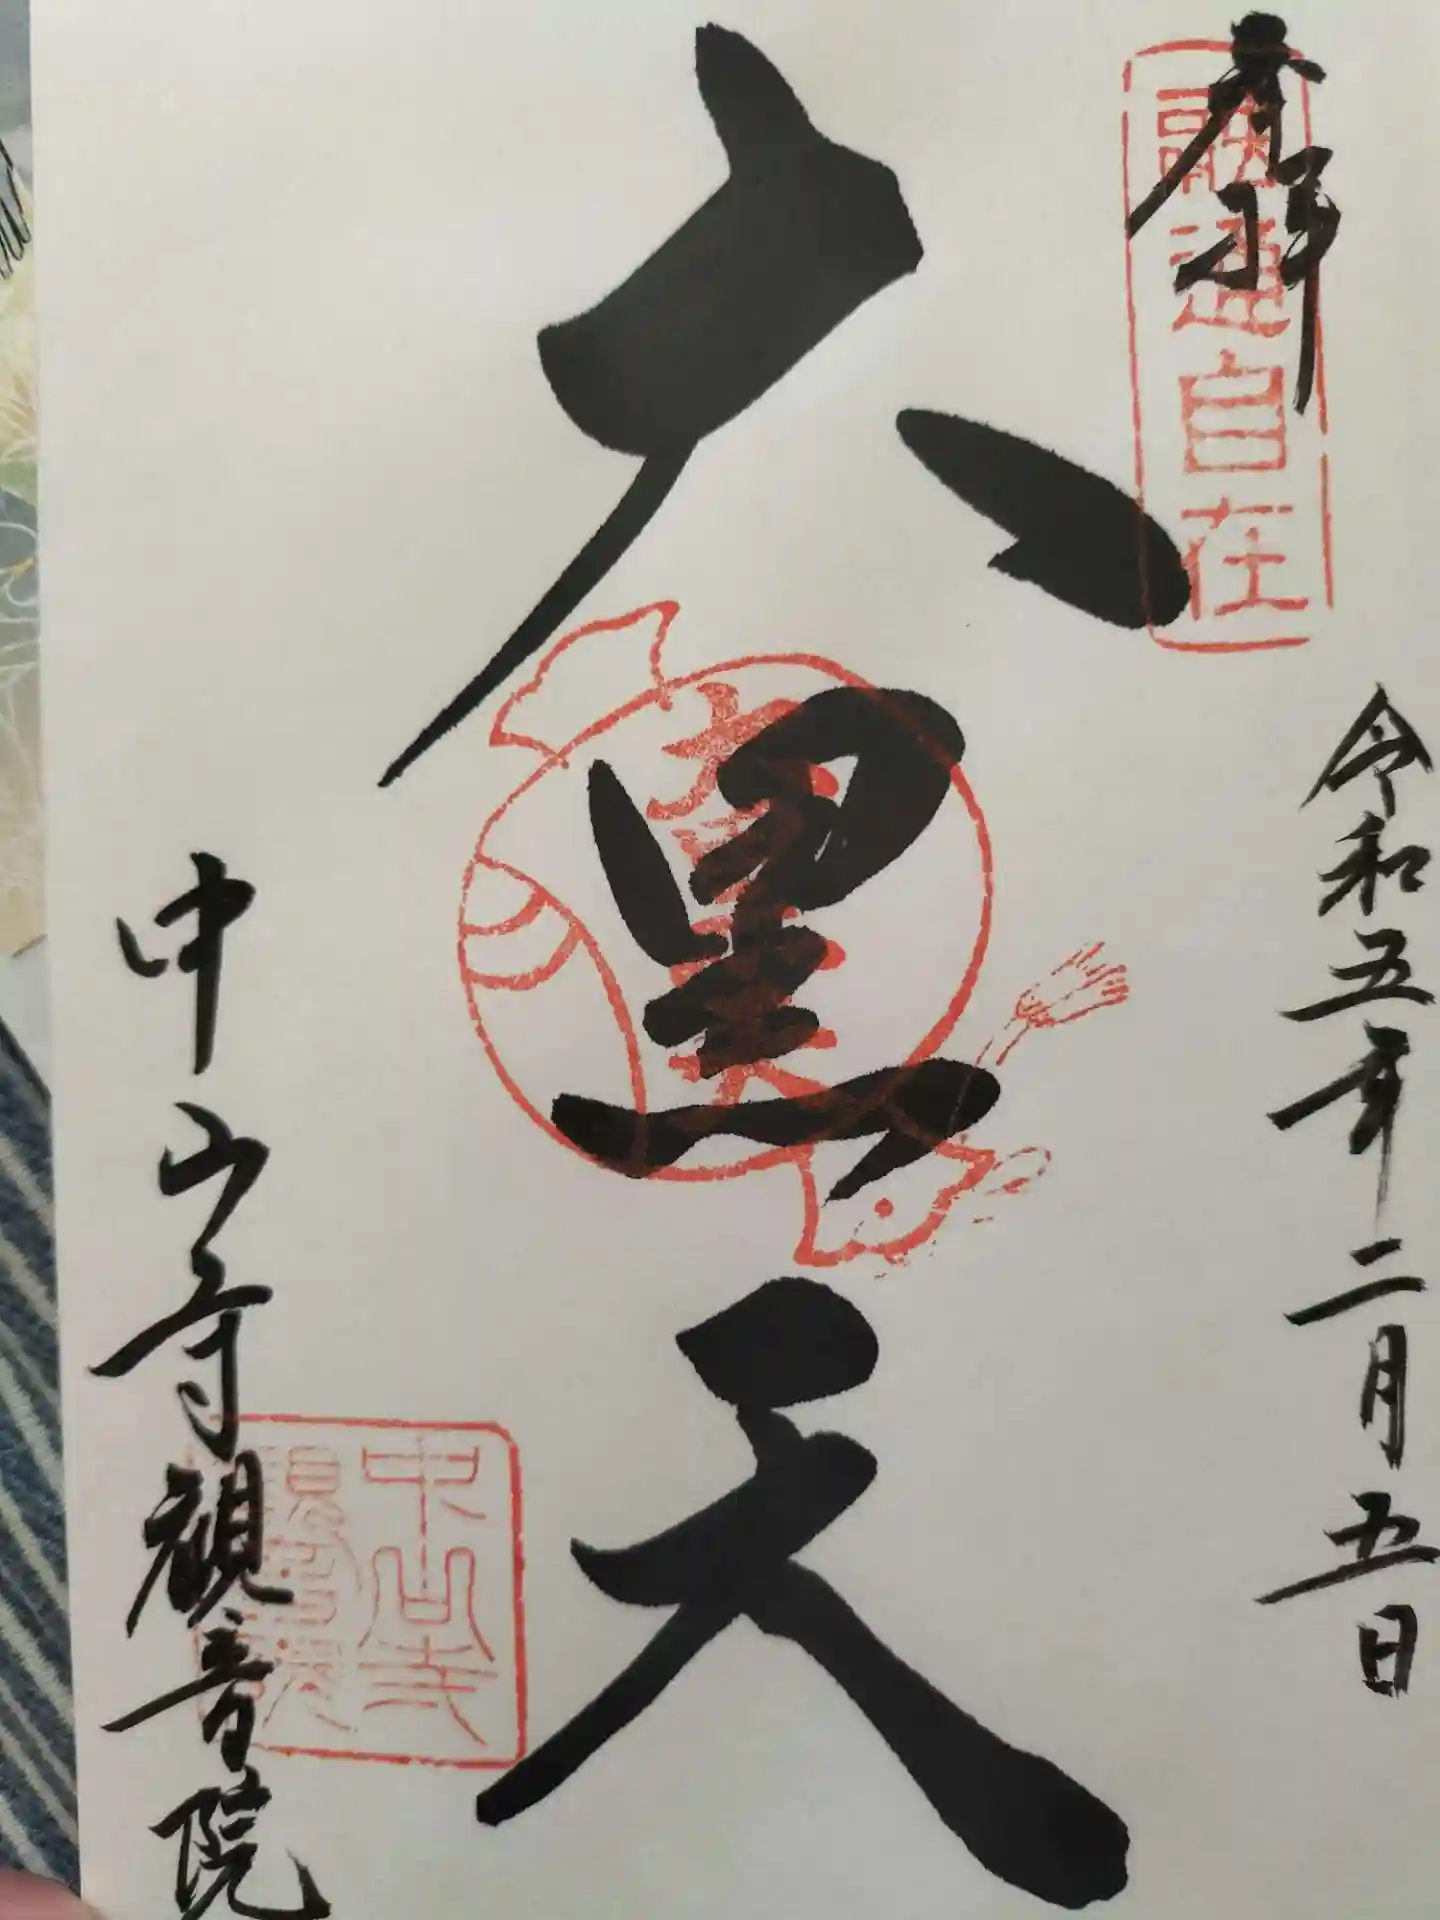 奉拝
融通自在
令和五年二月五日
大黒天
大黒天
中山寺観音院
中山寺
観音院